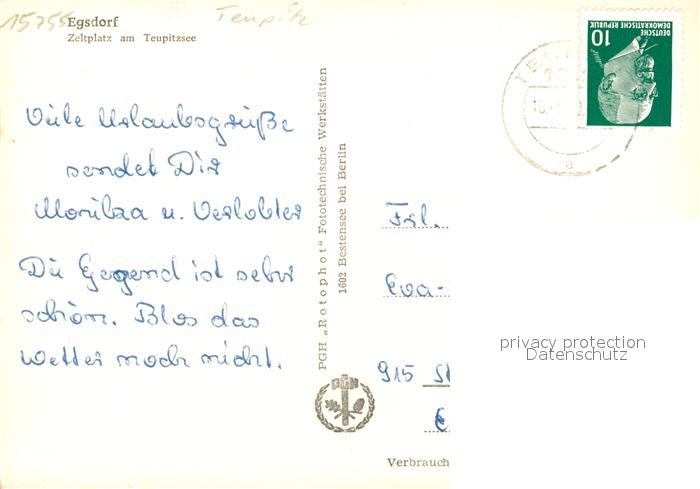 15755 Teupitz
Egsdorf
Zeltplatz am Teupitzsee
DEUTSCHE
DEMOKRATISCHE REPUBLIK
10
Viele Urlaubsgrüße
sendet Dir
u. Verlobter
Die Gegend ist sehr
schön. Blos das
Wetter noch nicht.
PGH „Rotophot“ Fototechnische Werkstätten
1602 Bestensee bei Berlin
PGH
Frl.
Eva-
915
privacy protection
Datenschutz
Verbrauch